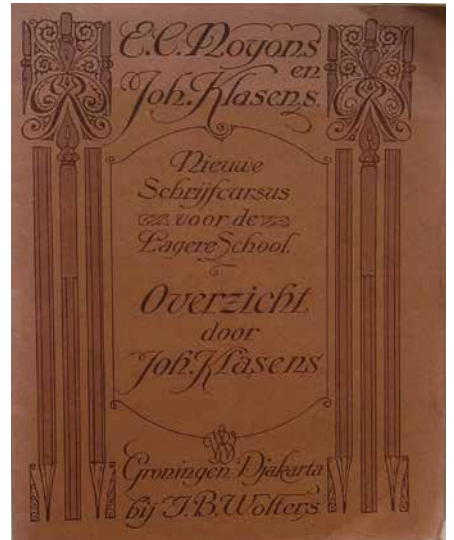 E.C. Noyons
en
Joh. Klasens.
Nieuwe
Schrijfcursus
voor de
Lagere School.
Overzicht
door
Joh. Klasens
Groningen-Djakarta
bij J.B. Wolters